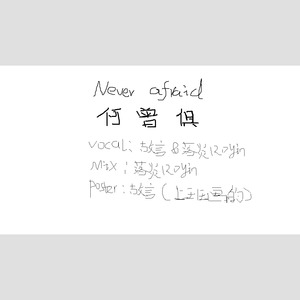 Never afraid
何曾惧
vocal: 故言&落炎Rolyin
Mix: 落炎Rolyin
Poster: 故言(上王国画的)